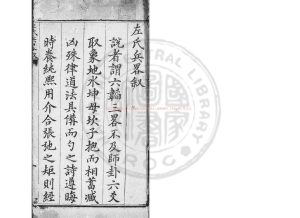 左氏兵畧叙
說者謂六韜三畧不及師卦六爻
取象地水坤母坎子抱而相蓄臧
凶殊律道法具備而勺之詩遵晦
時養純熙用介合張弛之矩則經
LIBRARY